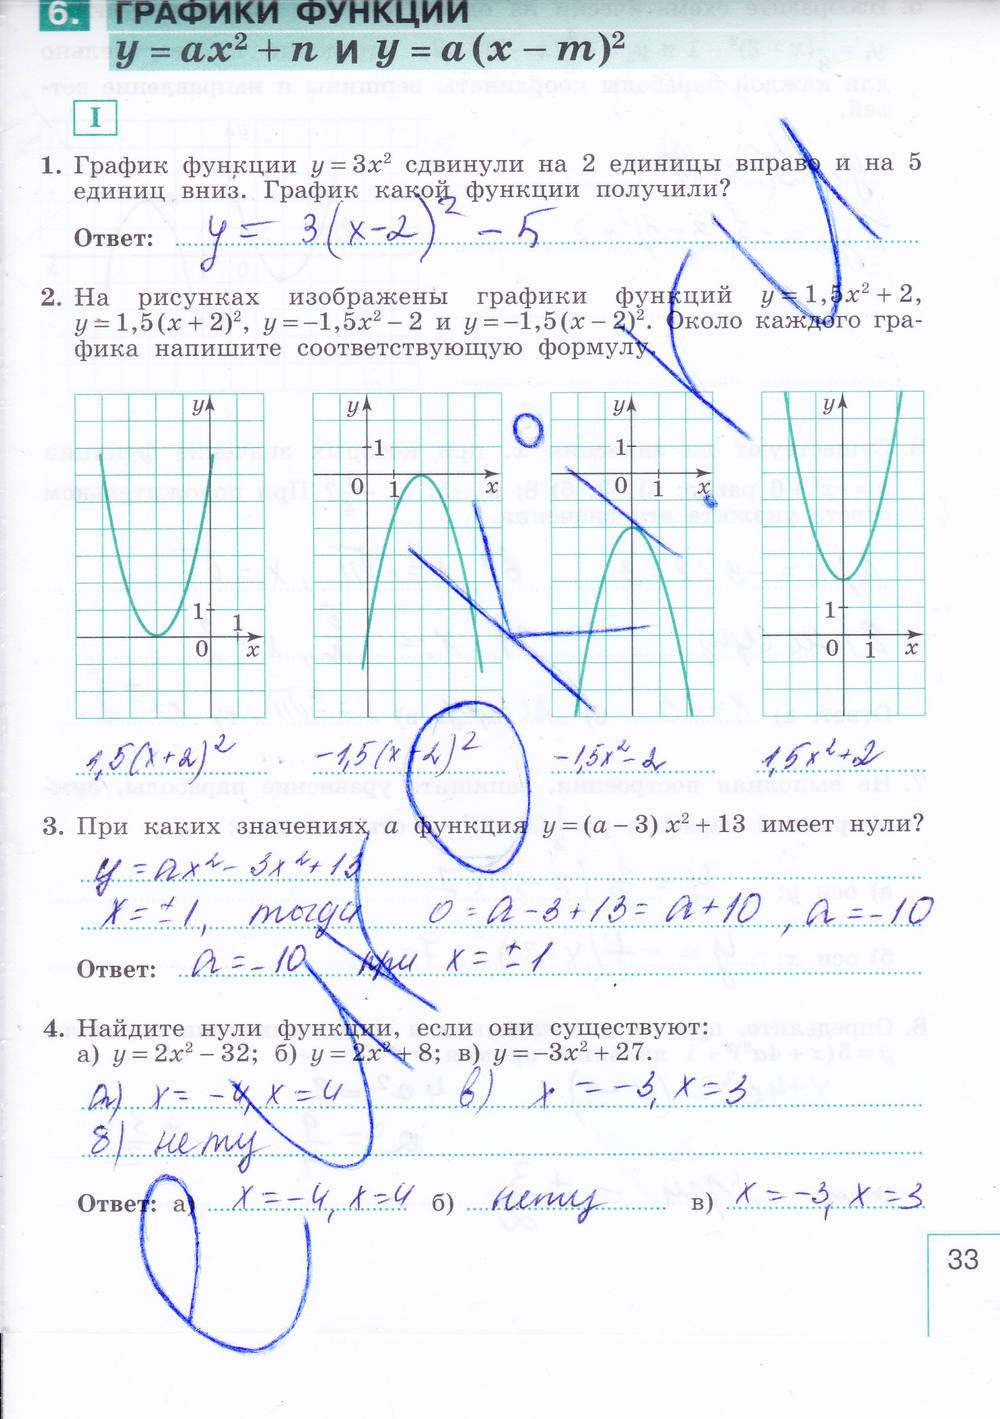 6. ГРАФИКИ ФУНКЦИЙ
y = ax² + n И y = a(x − m)²
I
1. График функции y = 3x² сдвинули на 2 единицы вправо и на 5
единиц вниз. График какой функции получили?
Ответ: y = 3(x-2)² - 5
2. На рисунках изображены графики функций y = 1,5x² + 2,
y = 1,5(x + 2)², y = −1,5x² − 2 и y = −1,5(x − 2)². Около каждого гра-
фика напишите соответствующую формулу.
y 1 1 0 x
y 1 0 1 x
y 1 0 1 x
y 1 0 1 x
1,5(x+2)² -1,5(x-2)² -1,5x²-2 1,5x²+2
3. При каких значениях a функция y = (a − 3) x² + 13 имеет нули?
y = ax² - 3x² + 13
x = ±1, тогда 0 = a - 3 + 13 = a + 10, a = -10
Ответ: a = -10 при x = ±1
4. Найдите нули функции, если они существуют:
а) y = 2x² − 32; б) y = 2x² + 8; в) y = −3x² + 27.
а) x = -4, x = 4 в) x = -3, x = 3
б) нету
Ответ: а) x = -4, x = 4 б) нету в) x = -3, x = 3
33